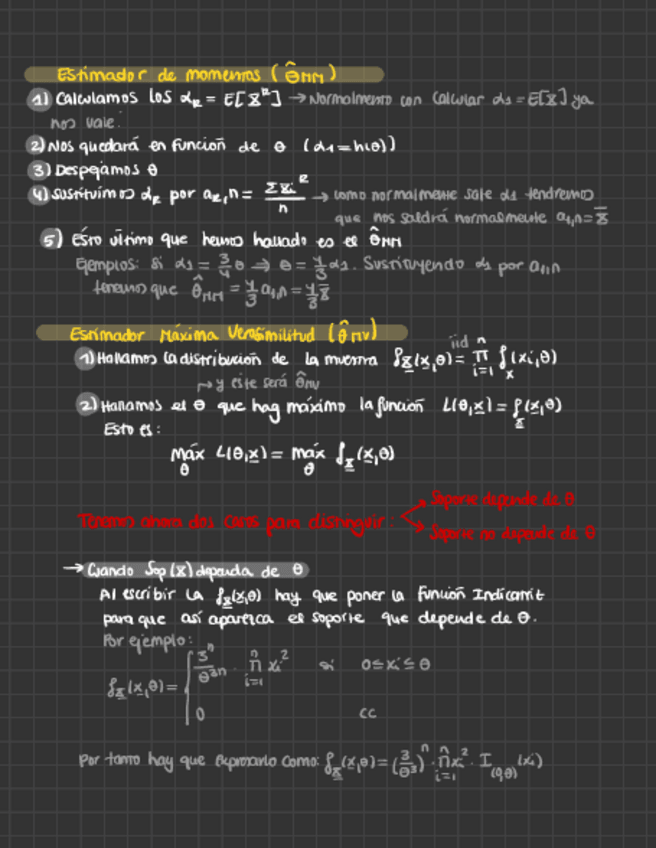 Estimador de momentos (θ̂_MM)
1) Calculamos los α_k = E[X^k] → Normalmente con calcular α_1 = E[X] ya
nos vale.
2) Nos quedará en función de θ (α_1 = h(θ))
3) Despejamos θ
4) Sustituimos α_k por a_k,n = Σx_i^k / n → como normalmente sale α_1 tendremos
que nos saldrá normalmente a_1,n = x̄
5) Esto último que hemos hallado es el θ̂_MM
Ejemplos: si α_1 = 3/4 θ ⇒ θ = 4/3 α_1. Sustituyendo α_1 por a_1,n
tenemos que θ̂_MM = 4/3 a_1,n = 4/3 x̄
Estimador Máxima Verosimilitud (θ̂_MV)
1) Hallamos la distribución de la muestra f_X(x,θ) = iid ∏_{i=1}^n f_X(x_i,θ)
↱ y este será θ̂_MV
2) Hallamos el θ que hag máximo la función L(θ,x) = f_X(x,θ)
Esto es:
Máx_θ L(θ,x) = máx_θ f_X(x,θ)
Soporte depende de θ
Tenemos ahora dos casos para distinguir:
Soporte no depende de θ
→ Cuando Sop(X) dependa de θ
Al escribir la f_X(x,θ) hay que poner la función Indicatriz
para que así aparezca el soporte que depende de θ.
Por ejemplo:
f_X(x,θ) = { 3^n/θ^{3n} · ∏_{i=1}^n x_i^2 si 0 ≤ x_i ≤ θ
0 cc
Por tanto hay que expresarlo como: f_X(x,θ) = (3/θ^3)^n · ∏_{i=1}^n x_i^2 · I_(0,θ)(x_i)